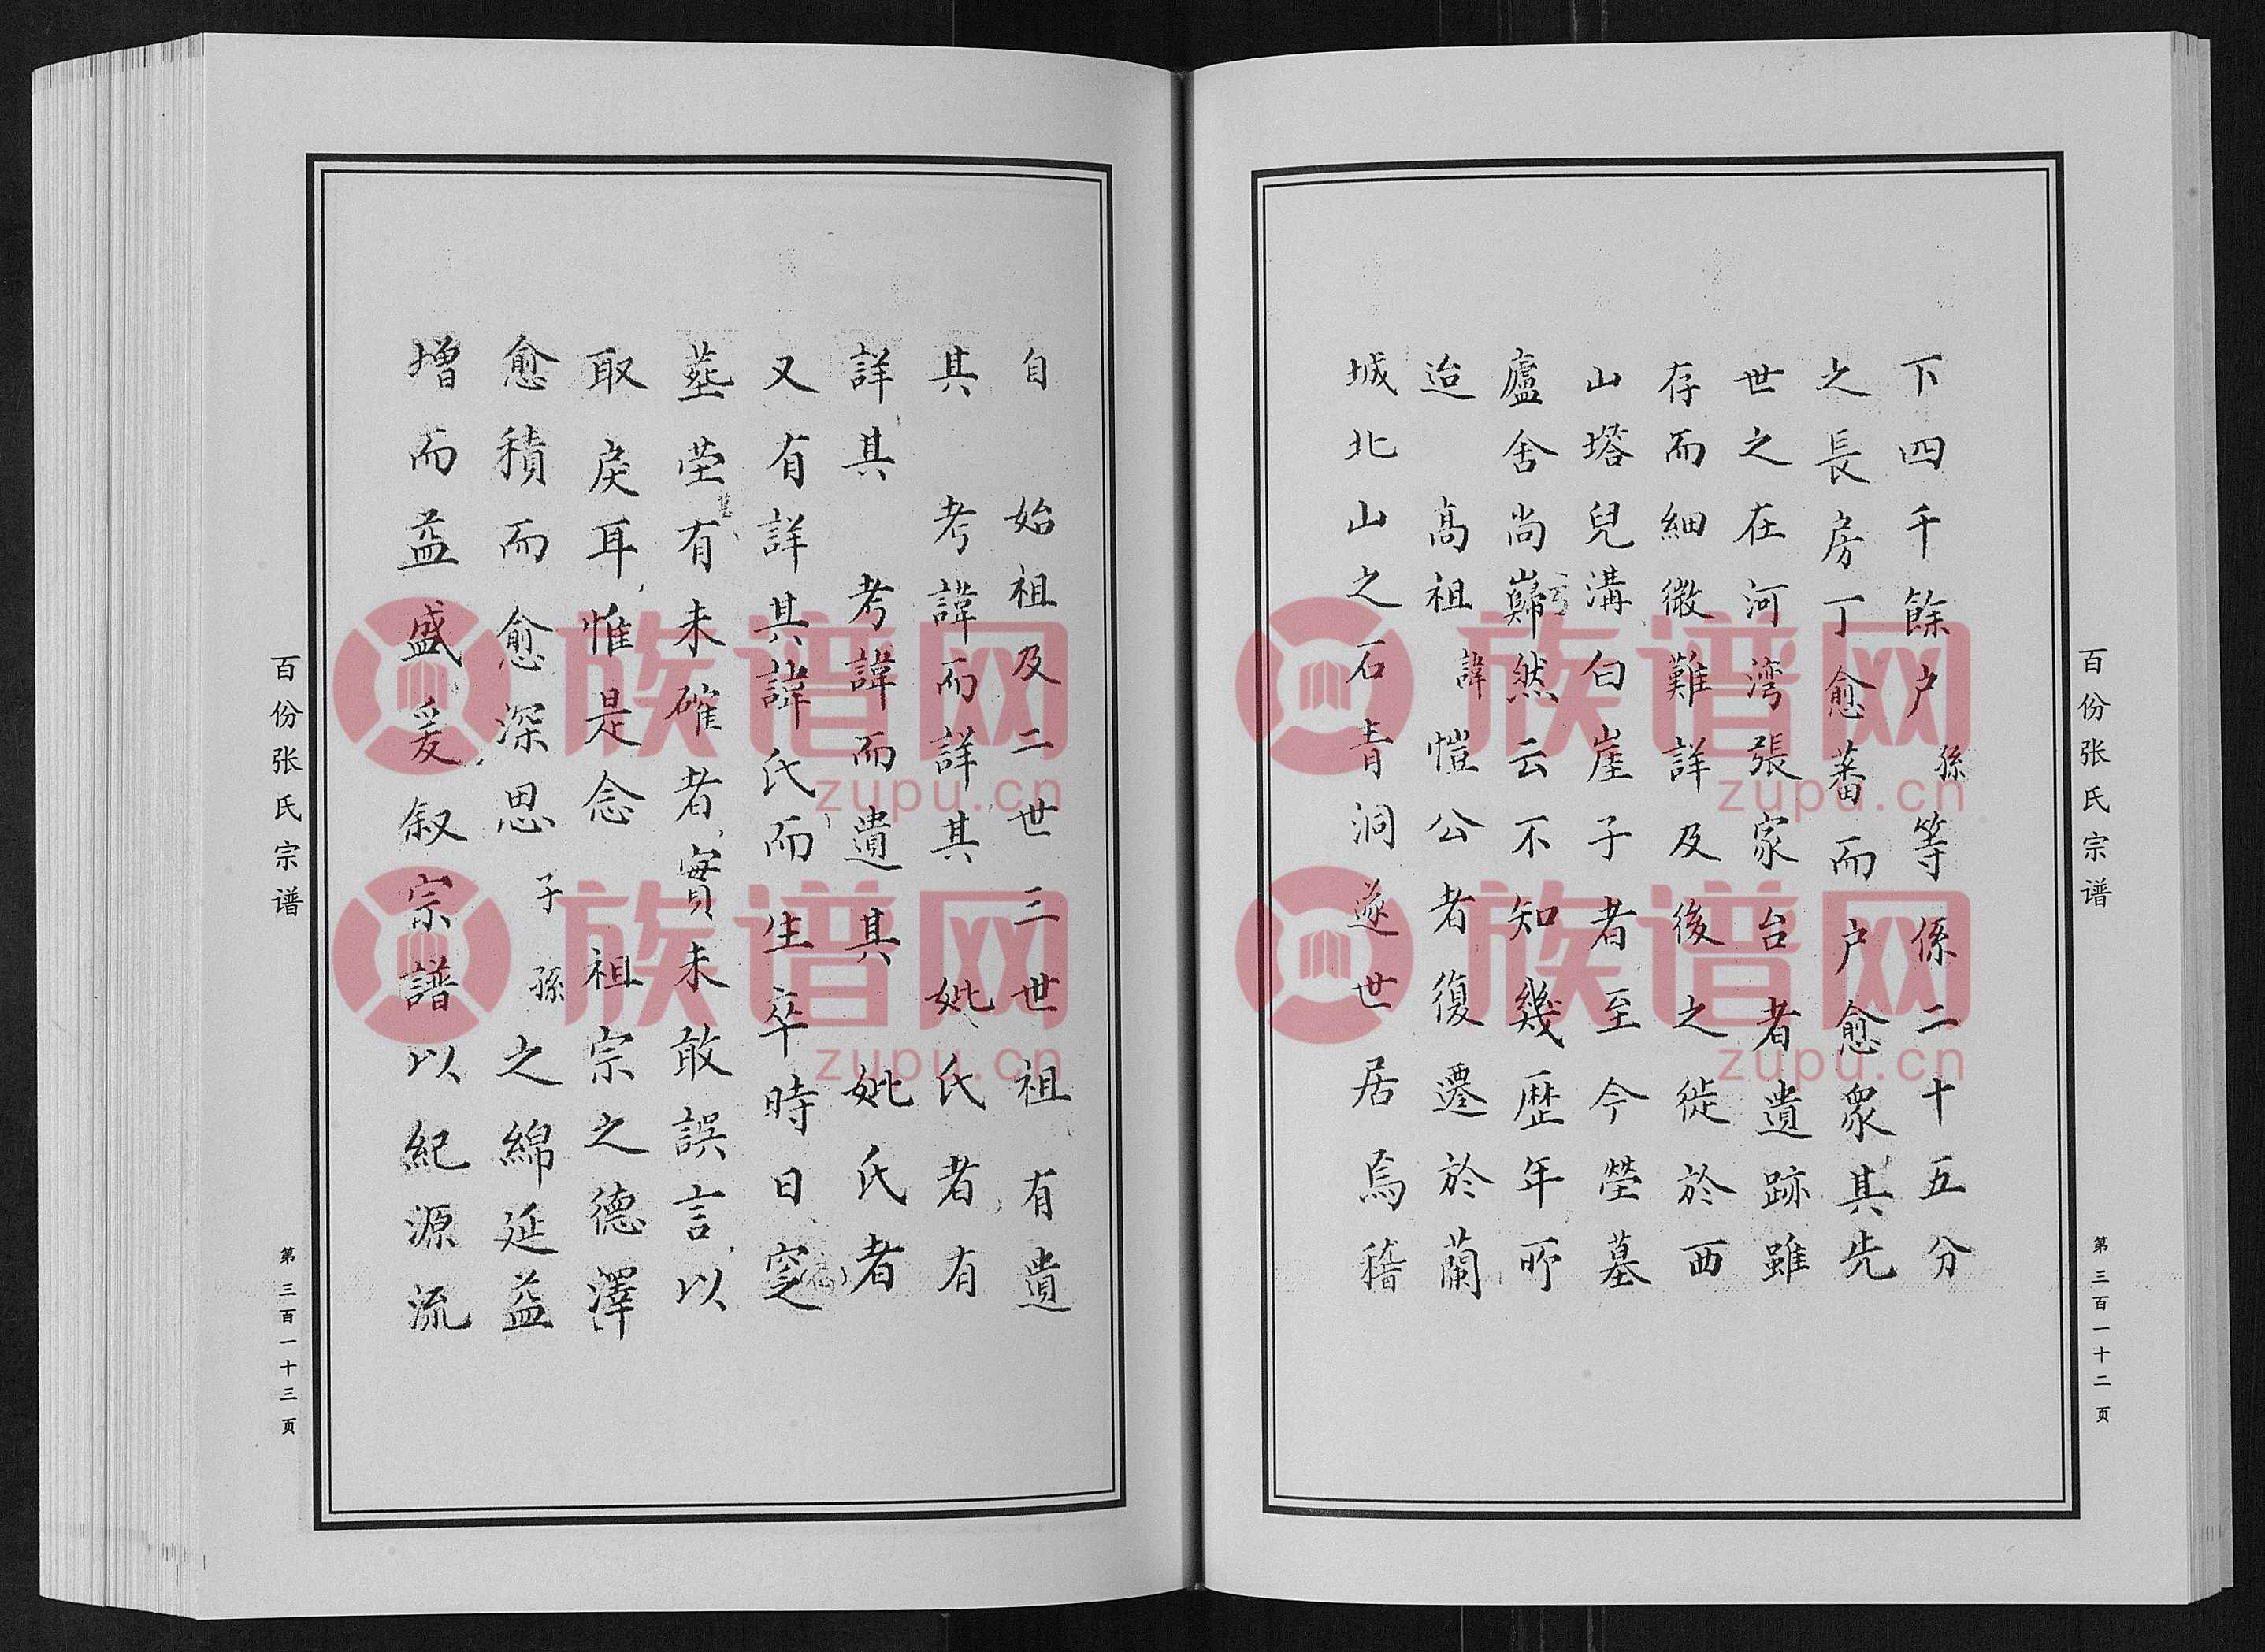 百份张氏宗谱
第三百一十二页
下四千餘户孫等係二十五分
之長房丁愈蕃而户愈衆其先
世之在河湾張家台者遺跡雖
存而細微難詳及後之徙於西
山塔兒溝白崖子者至今塋墓
廬舍尚巋然云不知幾歷年所
迨高祖諱愷公者復遷於蘭
城北山之石青洞遂世居焉稽
自始祖及二世三世祖有遺
其考諱而詳其妣氏者有
詳其考諱而遺其妣氏者
又有詳其諱氏而生卒時日窆
塟塋有未確者實未敢誤言以
取戾耳惟是念祖宗之德澤
愈積而愈深思子孫之綿延益
增而益盛爰叙宗譜以紀源流
百份张氏宗谱
第三百一十三页
族谱网
zupu.cn
族谱网
zupu.cn
族谱网
zupu.cn
族谱网
zupu.cn